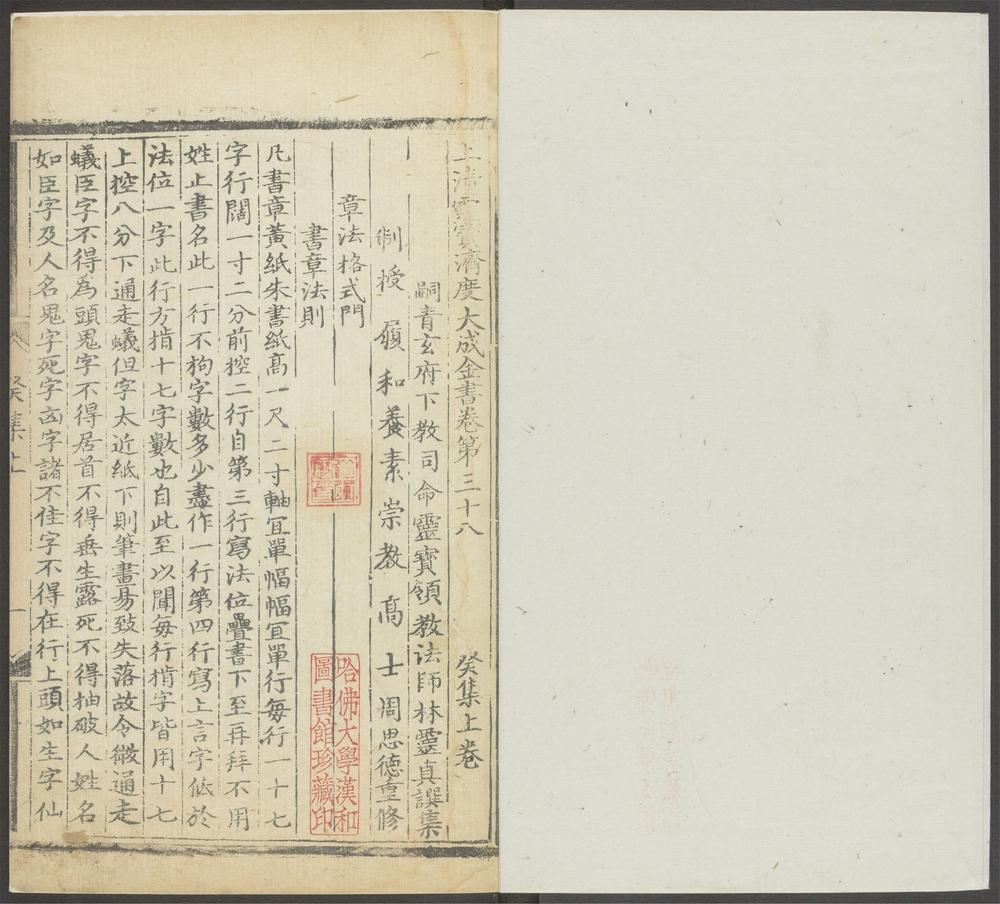 上清靈寶濟度大成金書卷第三十八 癸集上卷
嗣青玄府下教司命靈寶領教法師林靈真譔集
制授履和養素崇教高士周思德重修
章法格式門
書章法則
凡書章黃紙朱書紙高一尺二寸軸宜單幅幅宜單行每行一十七
字行闊一寸二分前控二行自第三行寫法位疊書下至再拜不用
姓止書名此一行不拘字數多少盡作一行第四行寫上言字低於
法位一字此行方揩十七字數也自此至以聞每行揩字皆用十七
上控八分下通走蟻但字太近紙下則筆畫易致失落故令微通走
蟻臣字不得為頭鬼字不得居首不得垂生露死不得抽破人姓名
如臣字及人名鬼字死字凶字諸不佳字不得在行上頭如生字仙
癸集上
一
哈佛大學漢和
圖書館珍藏印